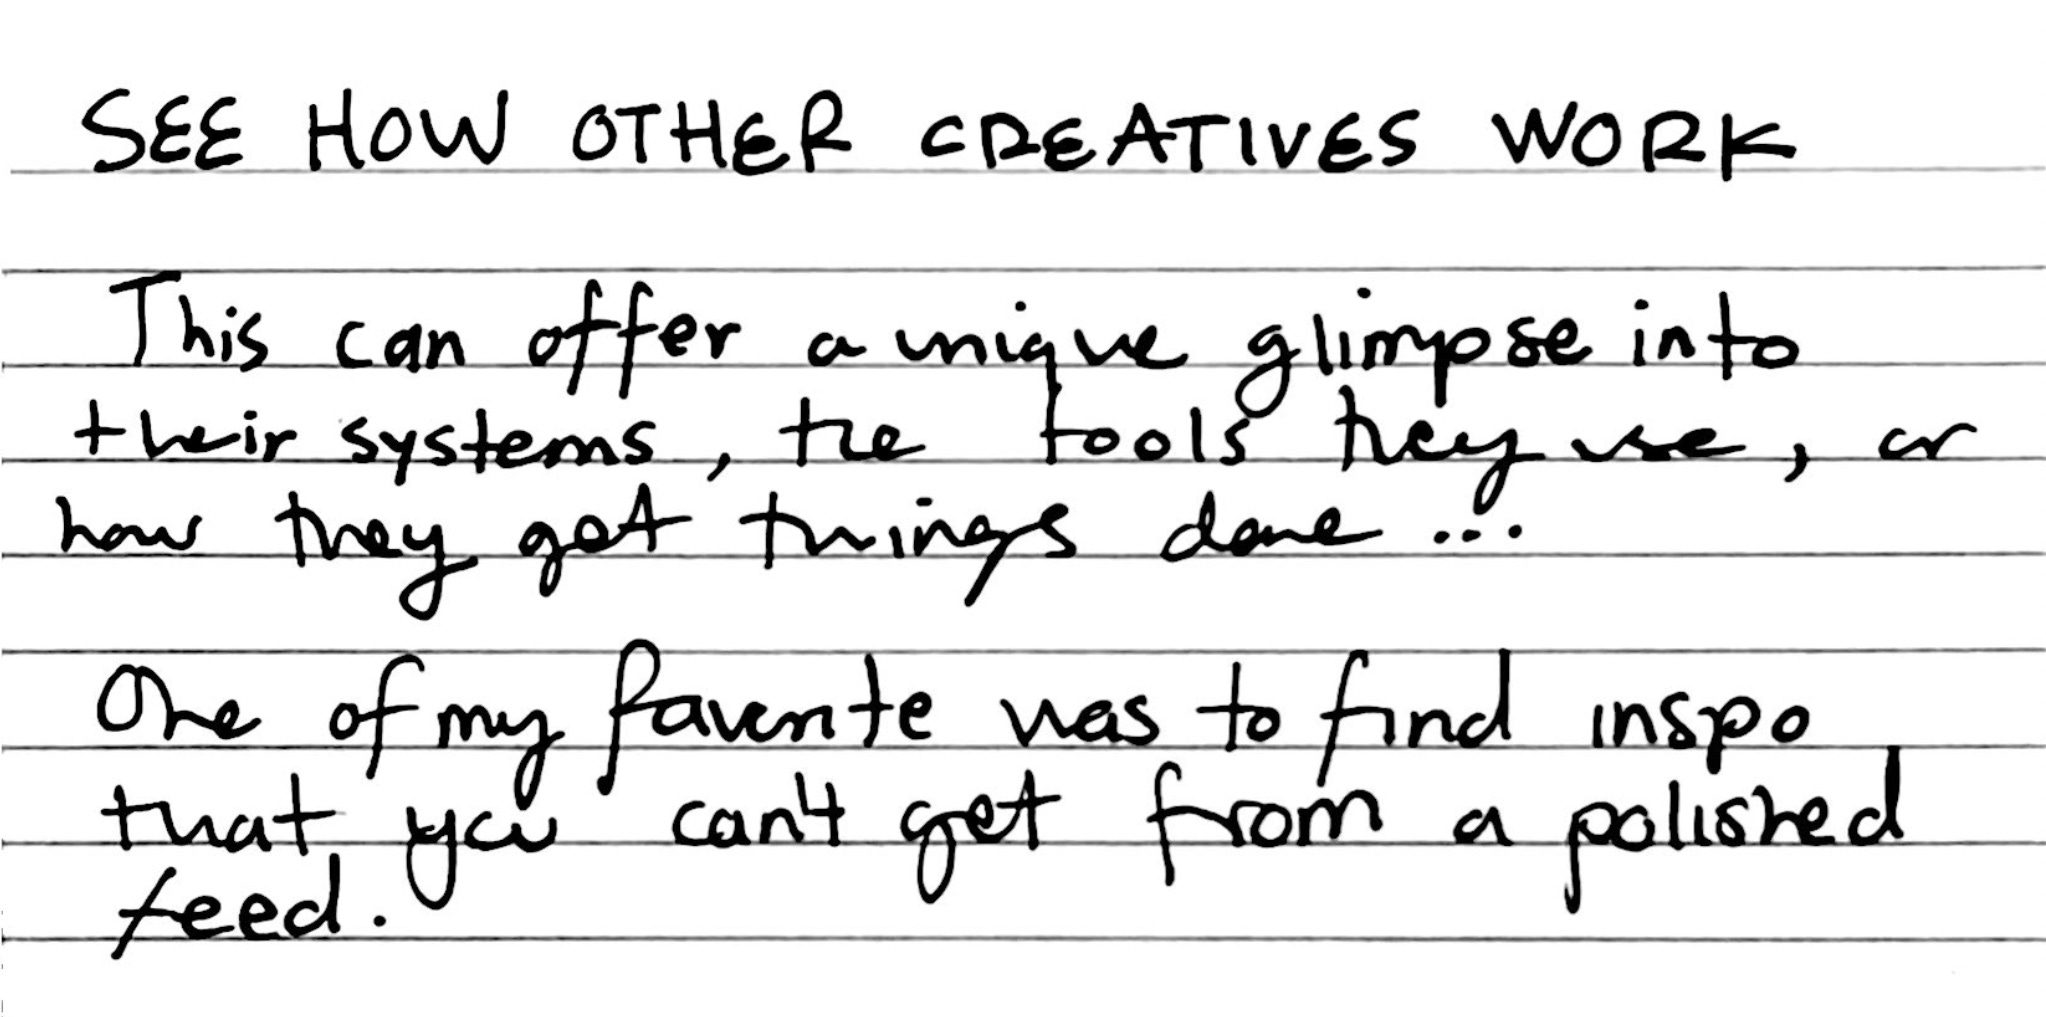 SEE HOW OTHER CREATIVES WORK
This can offer a unique glimpse into
their systems, the tools they use, or
how they get things done...
One of my favorite was to find inspo
that you can't get from a polished
feed.